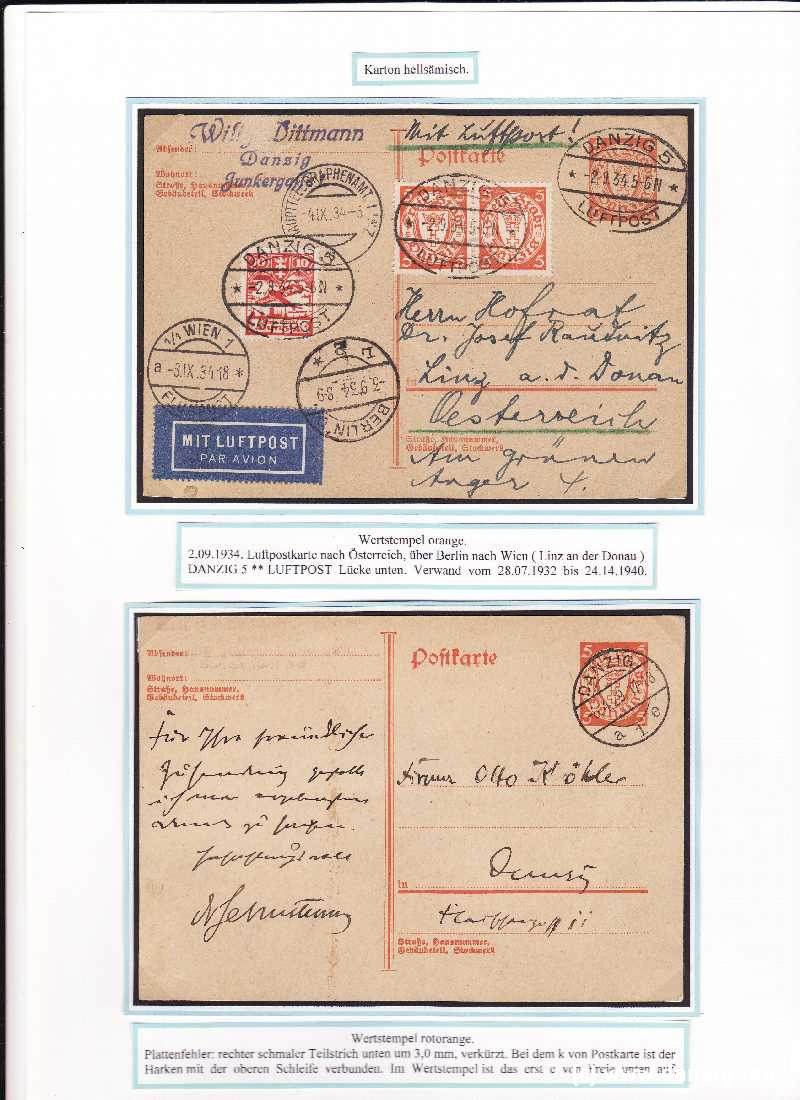 Karton hellsämisch.
Willy Dittmann
Danzig
Junkergasse
Absender:
Wohnort:
Straße, Hausnummer,
Gebäudeteil, Stockwerk
Mit Luftpost!
Postkarte
DANZIG 5
-2.9.34.5-6N
LUFTPOST
HAUPTTELEGRAPHENAMT
-4.IX.34
DANZIG 5
-2.9.34
LUFTPOST
5 5
DANZIG 5
10
LUFTPOST
1/1 WIEN 1
a -3.IX.34-18 *
BERLIN
-3.9.34. 8-9
MIT LUFTPOST
PAR AVION
Herrn Hofrat
Dr. Josef Raudnitz
in
Linz a. d. Donau
Oesterreich
Straße, Hausnummer,
Gebäudeteil, Stockwerk
Am grünen
Anger 4.
Wertstempel orange.
2.09.1934. Luftpostkarte nach Österreich, über Berlin nach Wien ( Linz an der Donau )
DANZIG 5 ** LUFTPOST Lücke unten. Verwand vom 28.07.1932 bis 24.14.1940.
Absender:
Wohnort:
Straße, Hausnummer,
Gebäudeteil, Stockwerk
Postkarte
5 5
DANZIG
a 1 e
5
Für Ihre freundliche
Zusendung
Firma Otto Köhler
in
Danzig
Straße, Hausnummer,
Gebäudeteil, Stockwerk
Wertstempel rotorange.
Plattenfehler: rechter schmaler Teilstrich unten um 3,0 mm, verkürzt. Bei dem k von Postkarte ist der
Harken mit der oberen Schleife verbunden. Im Wertstempel ist das erst e von Freie unten auf.